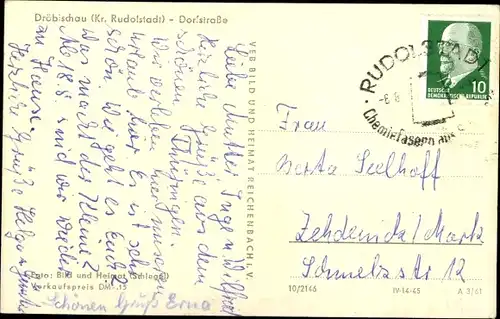 Dröbischau (Kr. Rudolstadt) - Dorfstraße
Liebe Mutter, Inge u. Wilfried
Herzliche Grüße aus dem
schönen Thüringen.
Wir verleben hier unseren
Urlaub hier. Es ist sehr
schön. Wie geht es Euch?
Was macht der Kleine?
Ab 18.8. sind wir wieder
zu Hause.
Herzliche Grüße Helga u.
Schönen Gruß Erna
Foto: Bild und Heimat (Schlegel)
Verkaufspreis DM -.15
VEB BILD UND HEIMAT REICHENBACH i. V.
RUDOLSTADT
-8.8
Chemiefasern aus
10
DEUTSCHE
DEMOKRATISCHE REPUBLIK
Frau
Berta Seelhoff
Zehdenick/Mark
Schmelzstr 12
10/2146 IV-14-45 A 3/61